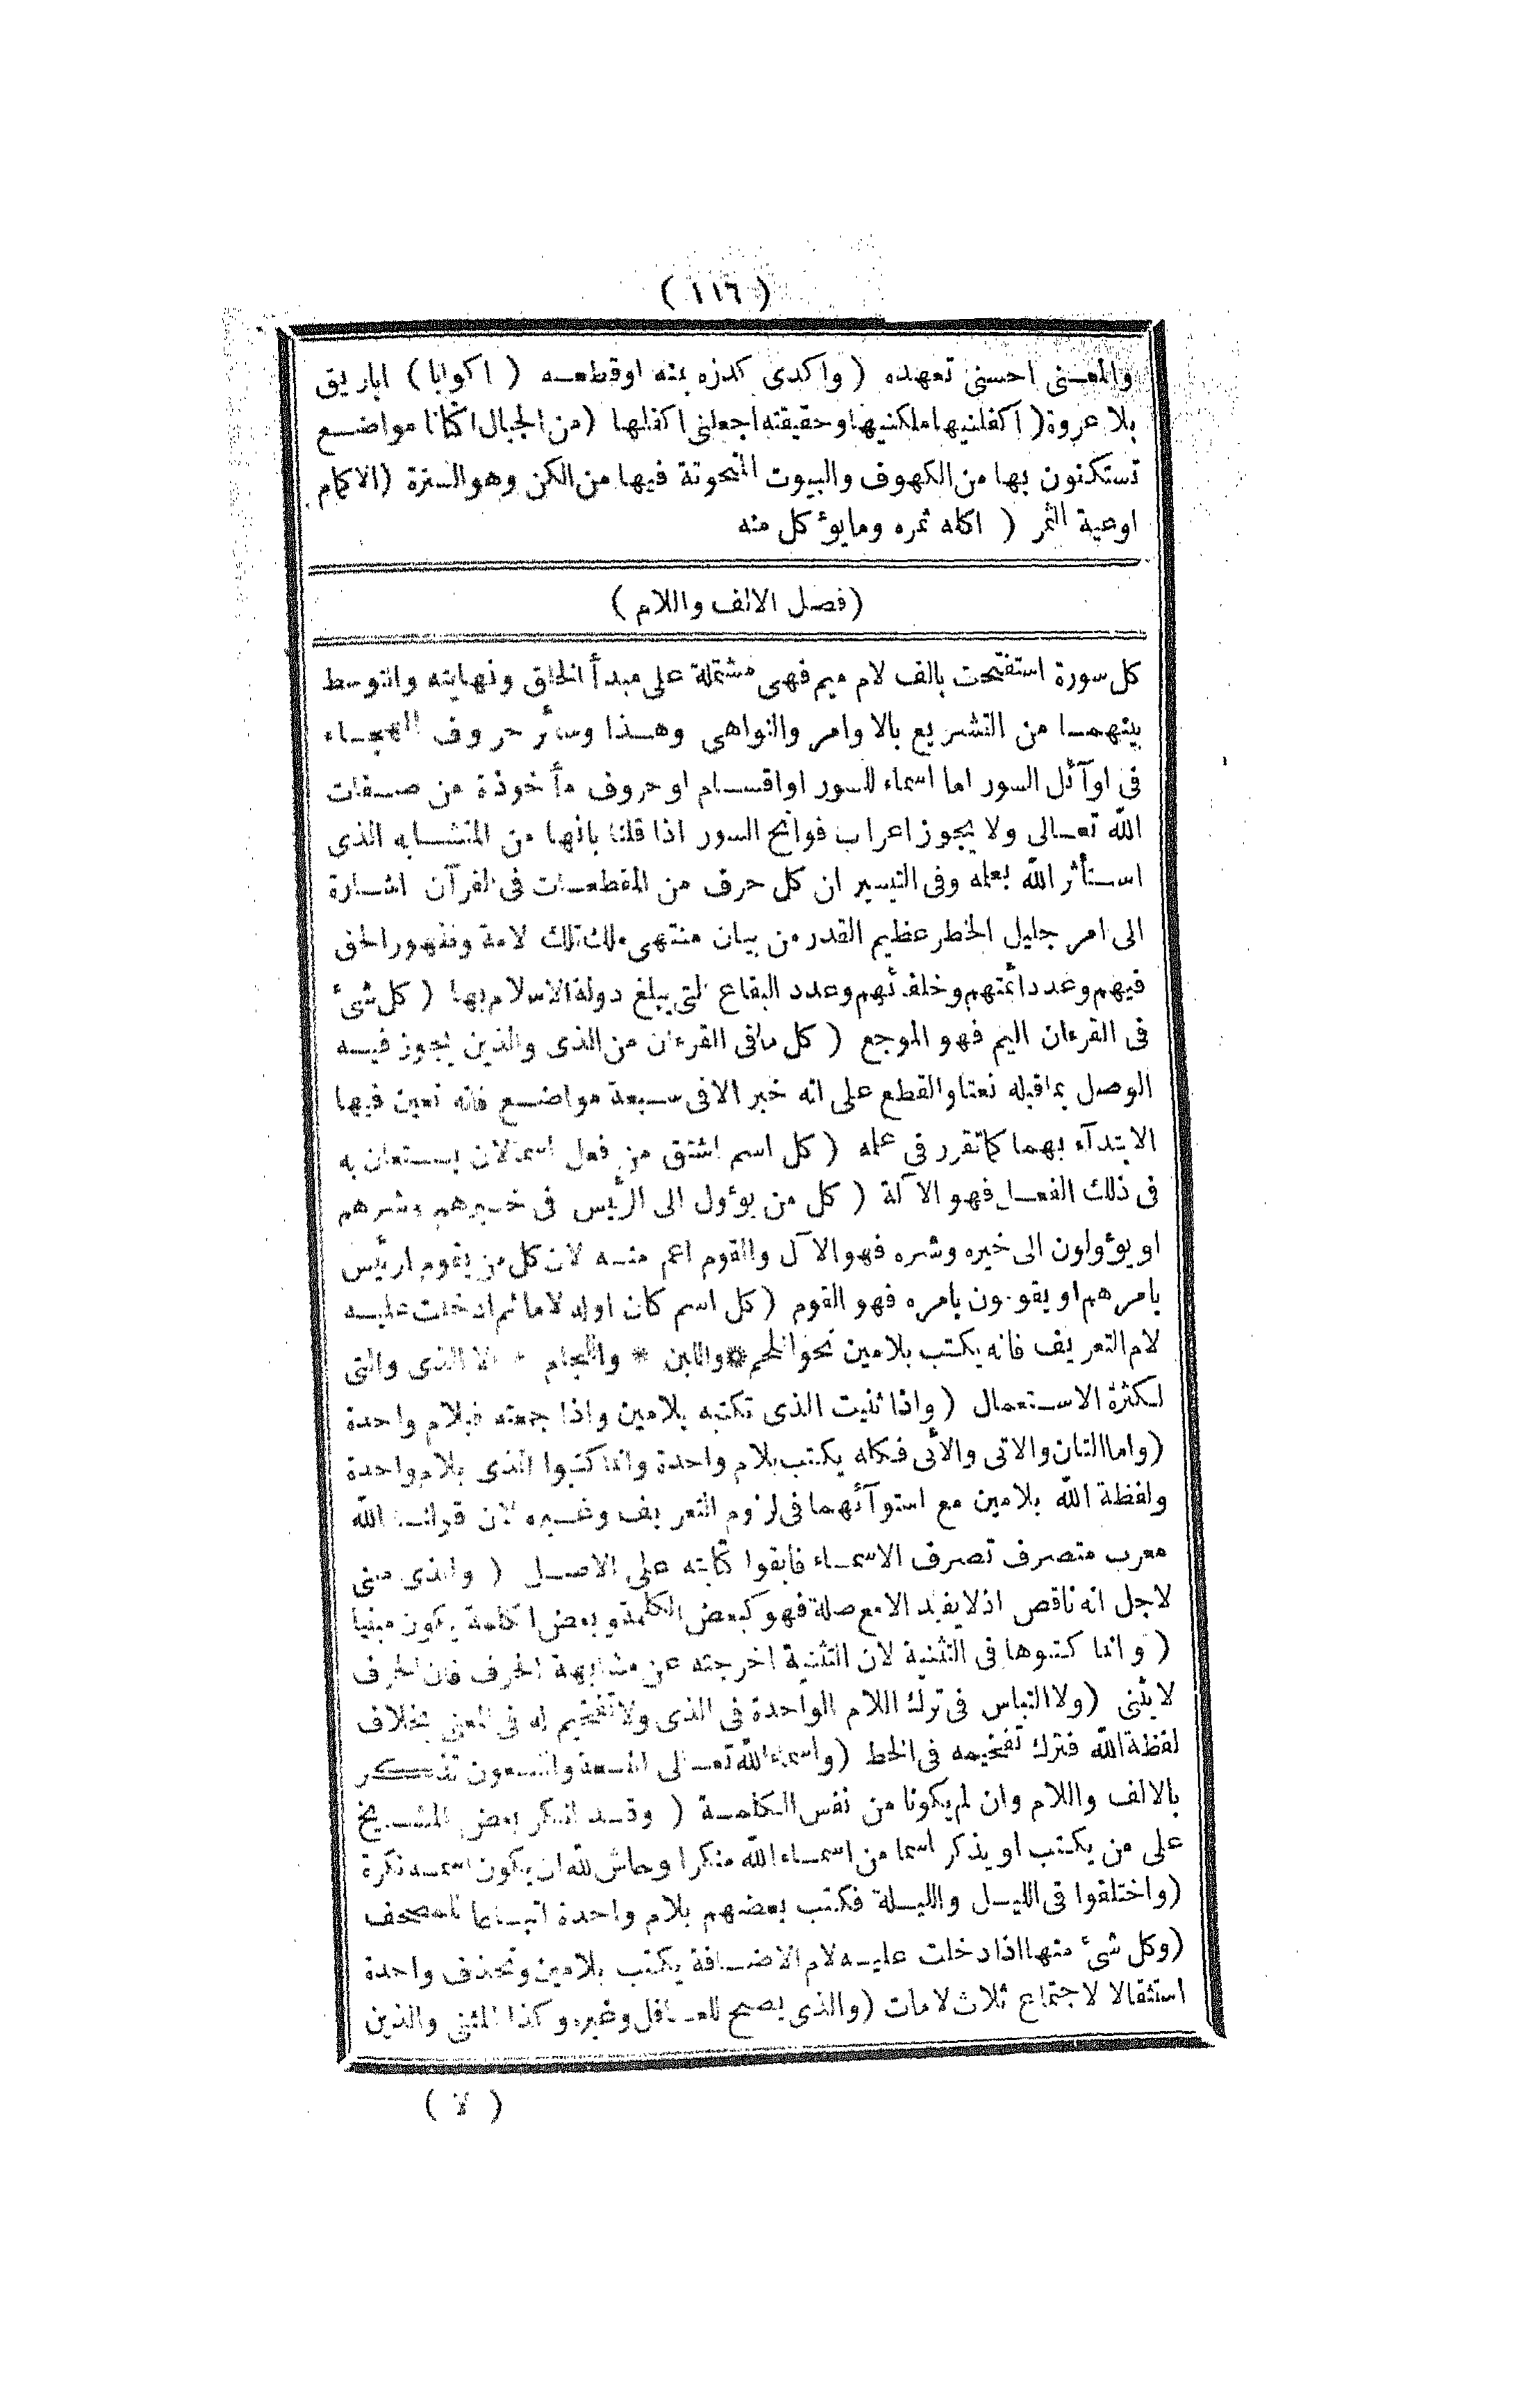 ( ١١٦ )
والمعنى احسنى تعهده ( واكدى كدزه بمنه اوقطعه ( اكوابا ) اباريق
بلا عروة ( اكفلنيها ملكنيها وحقيقته اجعلنى اكفلها ( من الجبال اكنانا مواضع
تستكنون بها من الكهوف والبيوت المنحوتة فيها من الكن وهو السترة ( الاكمام
اوعية الثمر ( اكله ثمره وما يؤكل منه
( فصل الالف واللام )
كل سورة استفتحت بالف لام ميم فهى مشتملة على مبدأ الخلق ونهايته والتوسط
بينهما من التشريع بالاوامر والنواهى وهذا وسائر حروف الهجاء
فى اوآئل السور اما اسماء للسور او اقسام او حروف مأخوذة من صفات
الله تعالى ولا يجوز اعراب فواتح السور اذا قلنا بانها من المتشابه الذى
استأثر الله بعلمه وفى التيسير ان كل حرف من المقطعات فى القرآن اشارة
الى امر جليل الخطر عظيم القدر من بيان منتهى ملك تلك لامة وظهور الحق
فيهم وعدد ائمتهم وخلفائهم وعدد البقاع التى يبلغ دولة الاسلام بها ( كل شئ
فى القرءان اليم فهو الموجع ( كل ما فى القرءان من الذى والذين يجوز فيه
الوصل بما قبله نعتا والقطع على انه خبر الا فى سبعة مواضع فانه تعين فيها
الابتدآء بهما كما تقرر فى محله ( كل اسم اشتق من فعل اسما لان يستعان به
فى ذلك الفعل فهو الآلة ( كل من يؤول الى الرئيس فى خيرهم وشرهم
او يؤولون الى خيره وشره فهو الآل والقوم اعم منه لان كل من يقوم لرئيس
بامرهم او يقومون بامره فهو القوم ( كل اسم كان اوله لاما ثم ادخلت عليه
لام التعريف فانه يكتب بلامين نحو اللحم * واللبن * واللجام * الا الذى والتى
لكثرة الاستعمال ( واذا ثنيت الذى تكتبه بلامين واذا جمعته فبلام واحدة
( واما التان والاتى والائى فكله يكتب بلام واحدة وانما كتبوا الذى بلام واحدة
ولفظة الله بلامين مع استوآئهما فى لزوم التعريف وغيره لان قولنا الله
معرب متصرف تصرف الاسماء فابقوا كتابته على الاصل ( والذى مبنى
لاجل انه ناقص اذ لا يفيد الا مع صلة فهو كبعض الكلمة وبعض الكلمة يكون مبنيا
( وانما كتبوها فى التثنية لان التثنية اخرجته عن مشابهة الحرف فان الحرف
لا يثنى ( ولا التباس فى ترك اللام الواحدة فى الذى ولا تفخيم له فى المعنى بخلاف
لفظة الله فترك تفخيمه فى الخط ( واسماء الله تعالى التسعة والتسعون تذكر
بالالف واللام وان لم يكونا من نفس الكلمة ( وقد انكر بعض المشايخ
على من يكتب او يذكر اسما من اسماء الله منكرا وحاش لله ان يكون اسمه نكرة
( واختلفوا فى الليل والليلة فكتب بعضهم بلام واحدة اتباعا للمصحف
( وكل شئ منها اذا دخلت عليه لام الاضافة يكتب بلامين وتحذف واحدة
استثقالا لاجتماع ثلاث لامات ( والذى يصح للعاقل وغيره وكذا المثنى والذين
( لا )